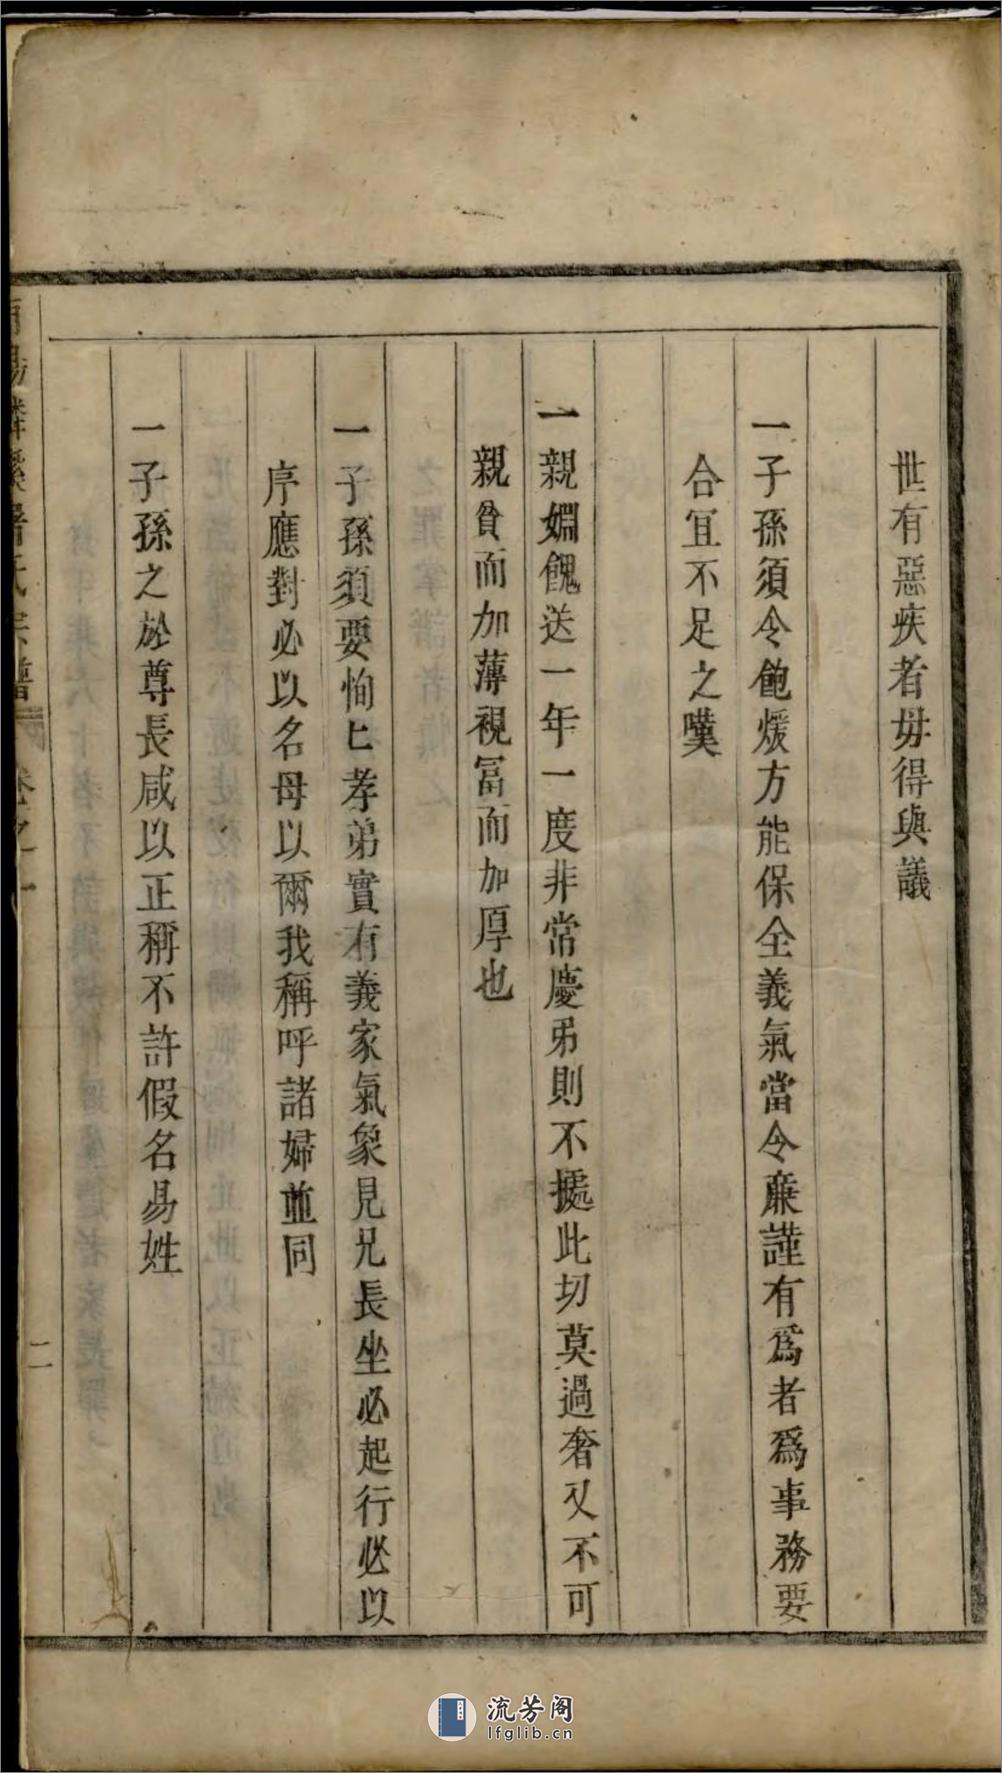 世有惡疾者毋得與議
一子孫須令飽煖方能保全義氣當令亷謹有爲者爲事務要
合宜不足之嘆
一親婣餽送一年一度非常慶弔則不摅此切莫過奢又不可
親貧而加薄視冨而加厚也
一子孫須要恂匕孝弟實有義家氣象見兄長坐必起行必以
序應對必以名母以爾我稱呼諸婦並同
一子孫之於尊長咸以正稱不許假名易姓
氏宗譜 卷之一 二
流芳阁
lfglib.cn